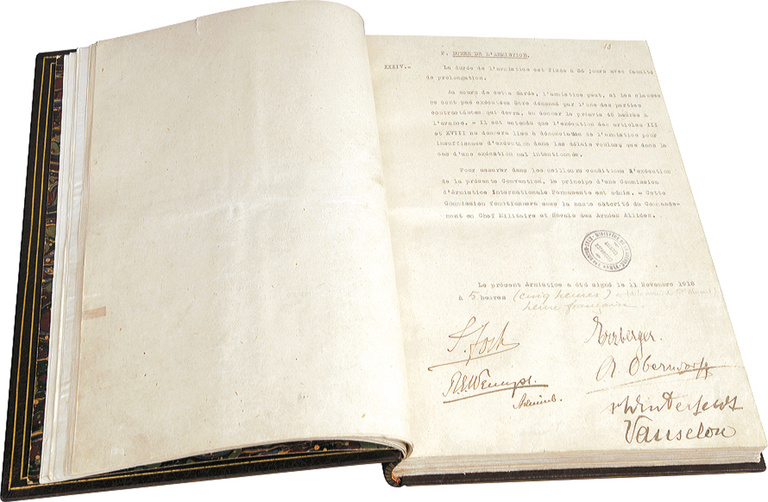 13
F. DUREE DE L'ARMISTICE.
XXXIV.- La durée de l'armistice est fixée à 36 jours avec faculté
de prolongation.
Au cours de cette durée, l'armistice peut, si les clauses
ne sont pas exécutées être dénoncé par l'une des parties
contractantes qui devra, en donner le préavis 48 heures à
l'avance. - Il est entendu que l'exécution des articles III
et XVIII ne donnera lieu à dénonciation de l'armistice pour
insuffisance d'exécution dans les délais voulus, que dans le
cas d'une exécution mal intentionnée.
Pour assurer dans les meilleures conditions l'exécution
de la présente Convention, le principe d'une Commission
d'Armistice Internationale Permanente est admis. - Cette
Commission fonctionnera sous la haute autorité du Commande-
ment en Chef Militaire et Naval des Armées Alliées.
Le présent Armistice a été signé le 11 Novembre 1918
à 5 heures (cinq heures)
heure française
F. Foch
Erzberger.
A Oberndorff
R. E. Wemyss.
Admiral.
v Winterfeldt
Vanselow